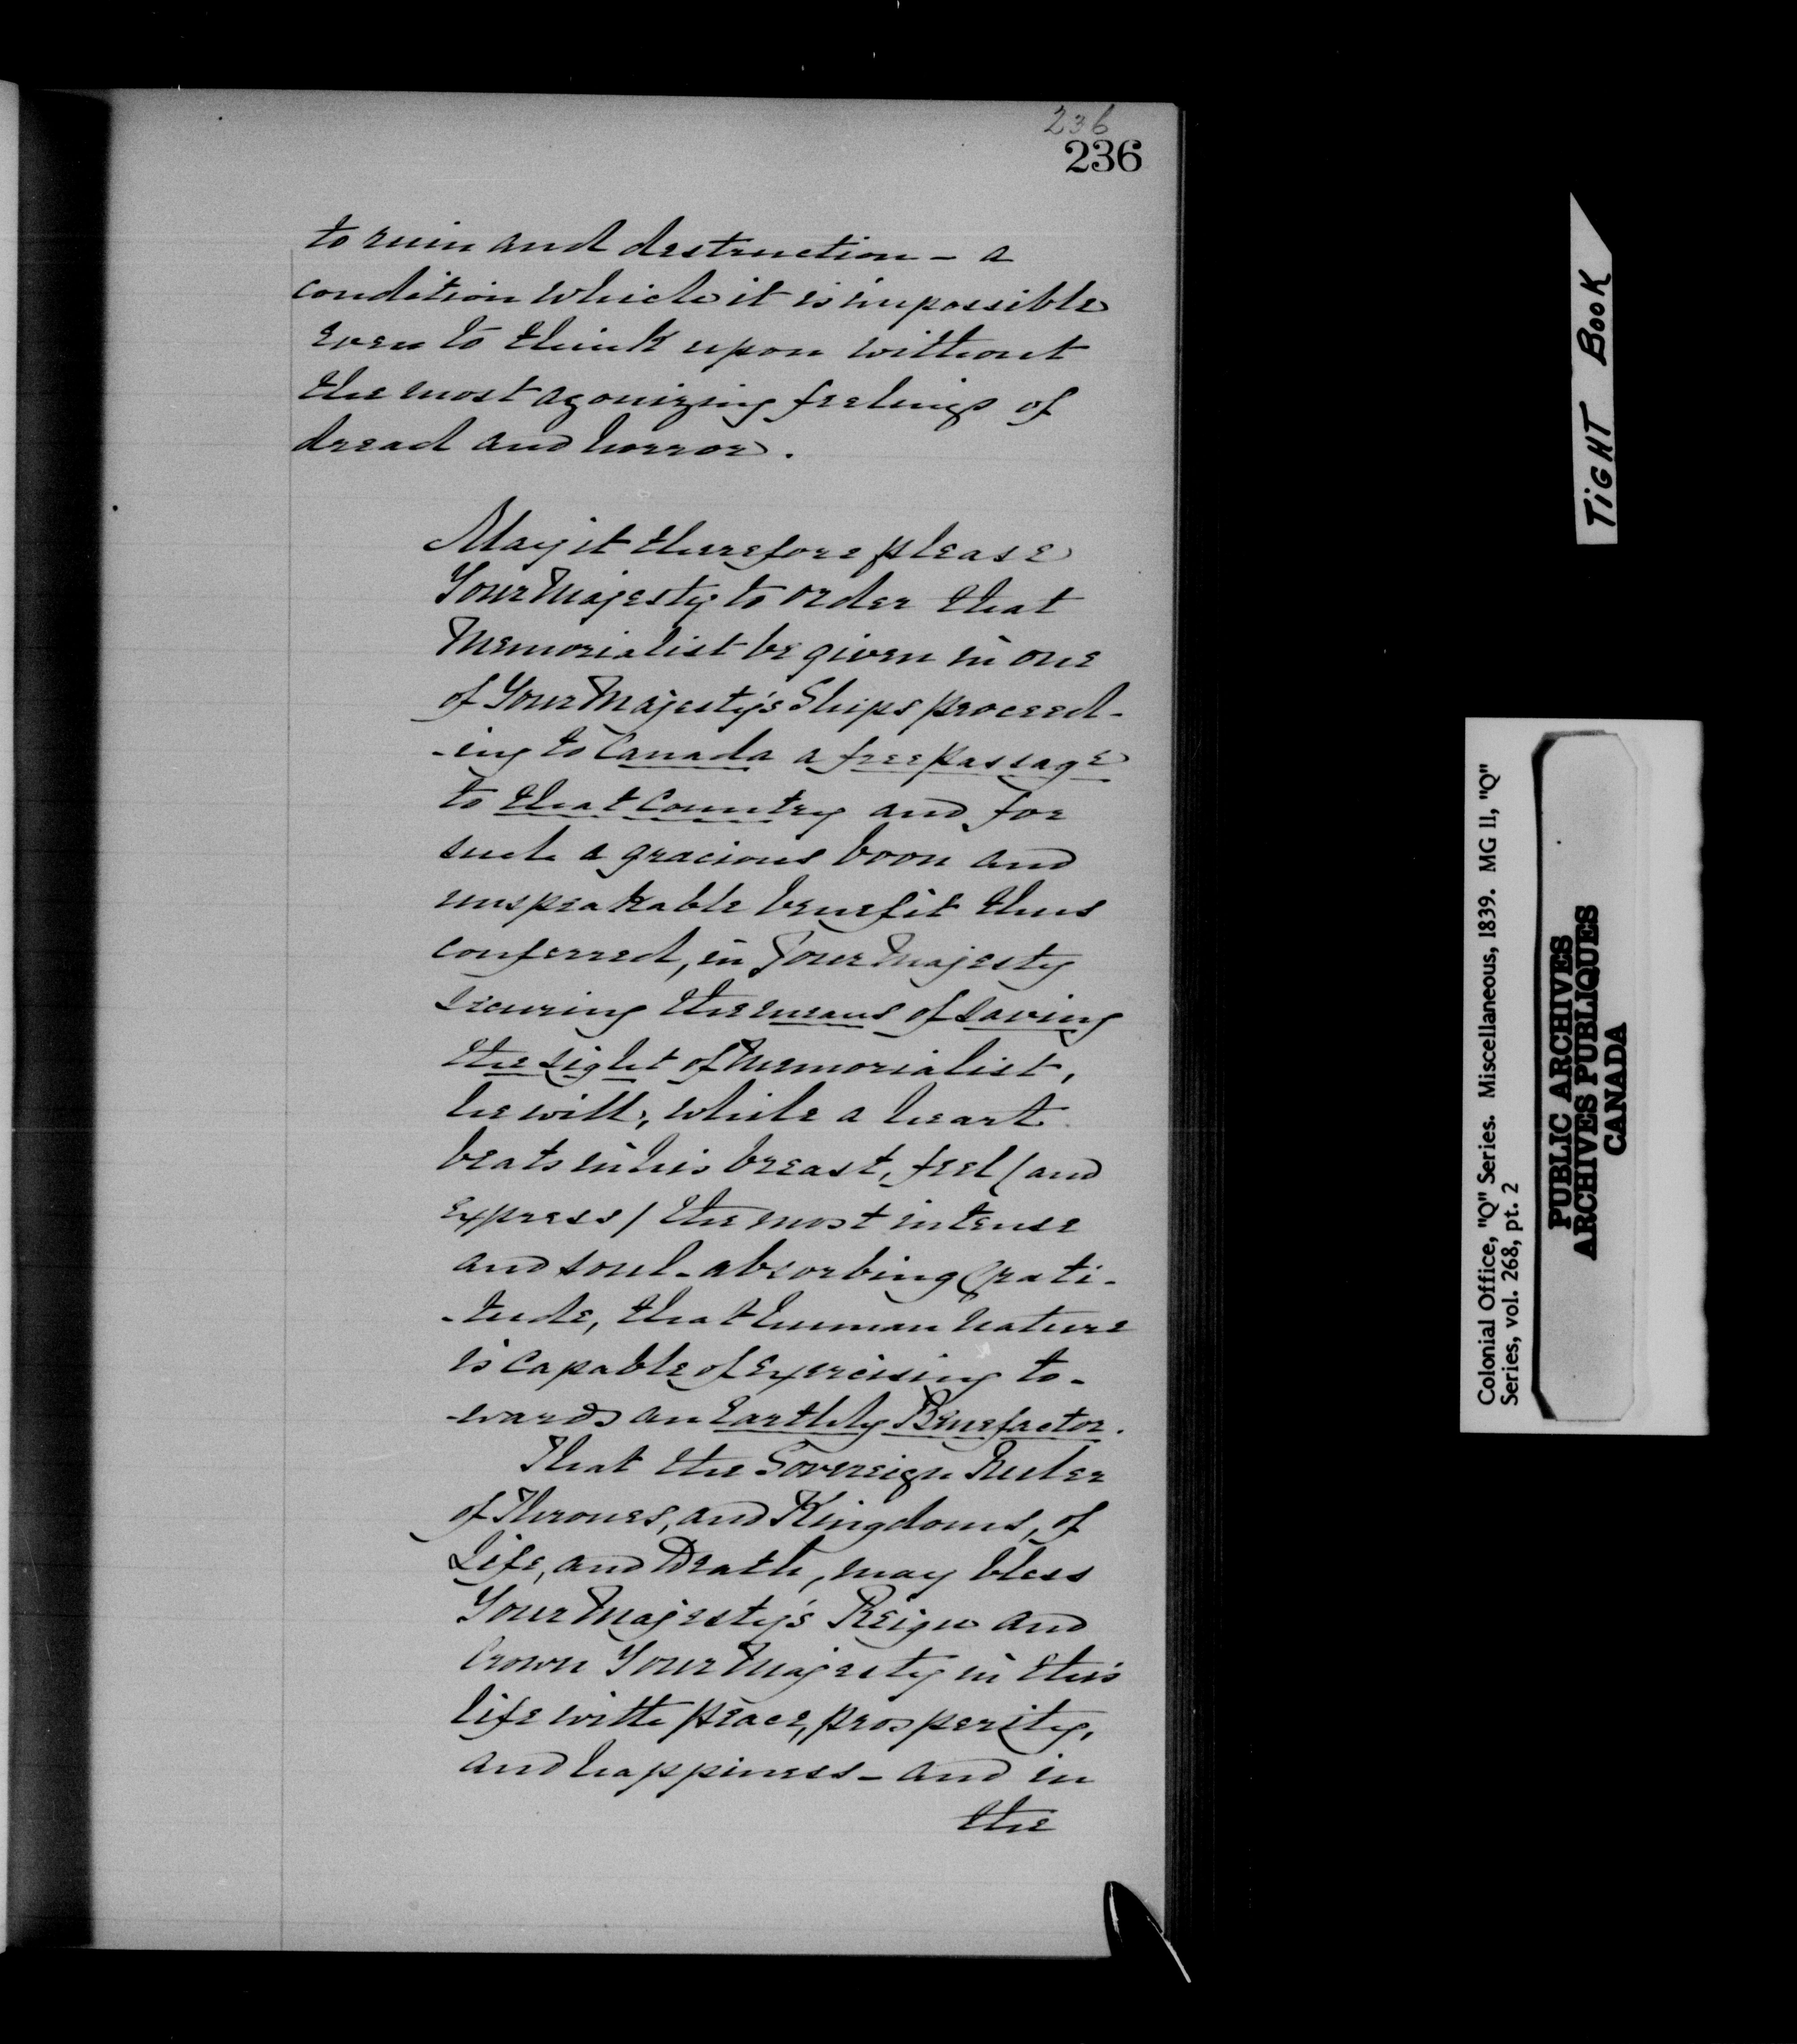 236
236
to ruin and destruction - a
condition which it is impossible
even to think upon without
the most agonizing feelings of
dread and horror.
May it therefore please
Your Majesty to order that
Memorialist be given in one
of Your Majesty's Ships proceed-
-ing to Canada a free passage
to that Country and for
such a gracious boon and
unspeakable benefit thus
conferred, in Your Majesty
securing the means of saving
the sight of Memorialist,
he will, while a heart
beats in his breast, feel (and
express) the most intense
and soul-absorbing Grati-
-tude, that human nature
is capable of exercising to-
-wards an Earthly Benefactor.
That the Sovereign Ruler
of Thrones, and Kingdoms, of
Life, and Death, may bless
Your Majesty's Reign and
Crown Your Majesty in this
life with peace, prosperity,
and happiness - and in
the
TIGHT BOOK
Colonial Office, "Q" Series. Miscellaneous, 1839. MG 11, "Q"
Series, vol. 268, pt. 2
PUBLIC ARCHIVES
ARCHIVES PUBLIQUES
CANADA